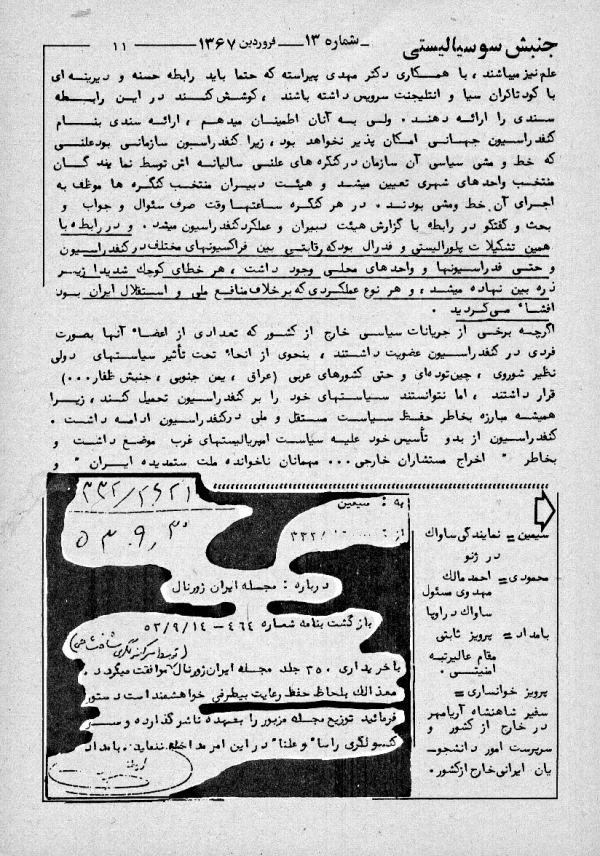 جنبش سوسیالیستی شماره ۱۳ فروردین ۱۳۶۷ ۱۱
علم نیز میباشند، با همکاری دکتر مهدی پیراسته که حتما باید رابطه حسنه و دیرینه ای
با کودتاگران سیا و انتلیجنت سرویس داشته باشند، کوشش کنند در این رابطه
سندی را ارائه دهند. ولی به آنان اطمینان میدهم، ارائه سندی بنام
کنفدراسیون جهانی امکان پذیر نخواهد بود، زیرا کنفدراسیون سازمانی بود علنی
که خط و مشی سیاسی آن سازمان در کنگره های علنی سالیانه اش توسط نمایندگان
منتخب واحدهای شهری تعیین میشد و هیئت دبیران منتخب کنگره ها موظف به
اجرای آن خط ومشی بودند. در هر کنگره ساعتها وقت صرف سئوال و جواب و
بحث و گفتگو در رابطه با گزارش هیئت دبیران و عملکرد کنفدراسیون میشد. و در رابطه با
همین تشکیلات پلورالیستی و فدرال بود که رقابتی بین فراکسیونهای مختلف در کنفدراسیون
و حتی فدراسیونها و واحدهای محلی وجود داشت، هر خطای کوچک شدیدا زیر
ذره بین نهاده میشد، و هر نوع عملکردی که برخلاف منافع ملی و استقلال ایران بود
افشاء می گردید.
اگرچه برخی از جریانات سیاسی خارج از کشور که تعدادی از اعضاء آنها بصورت
فردی در کنفدراسیون عضویت داشتند، بنحوی از انحاء تحت تأثیر سیاستهای دولی
نظیر شوروی، چین توده ای و حتی کشورهای عربی (عراق، یمن جنوبی، جنبش ظفار...)
قرار داشتند، اما نتوانستند سیاستهای خود را بر کنفدراسیون تحمیل کنند، زیرا
همیشه مبارزه بخاطر حفظ سیاست مستقل و ملی در کنفدراسیون ادامه داشت.
کنفدراسیون از بدو تأسیس خود علیه سیاست امپریالیستهای غرب موضع داشت و
بخاطر " اخراج مستشاران خارجی... مهمانان ناخوانده ملت ستمدیده ایران " و
سیمین = نمایندگی ساواک
در ژنو
محمودی = احمد مالک
مهدوی مسئول
ساواک در اروپا
بامداد = پرویز ثابتی
مقام عالیرتبه
امنیتی.
پرویز خوانساری =
سفیر شاهنشاه آریامهر
در خارج از کشور و
سرپرست امور دانشجو-
یان ایرانی خارج از کشور.
به : سیمین
از : ۳۳۲
درباره : مجله ایران ژورنال
بازگشت بنامه شماره ۴۶۴ - ۵۳/۹/۱۴
با خریداری ۳۵۰ جلد مجله ایران ژورنال موافقت میگردد.
معذالک بلحاظ حفظ رعایت بیطرفی خواهشمند است دستور
فرمائید توزیع مجله مزبور را بعهده ناشر گذارده و سر
کنسولگری راسا" و علنا" در این امر مداخله ننماید. بامداد